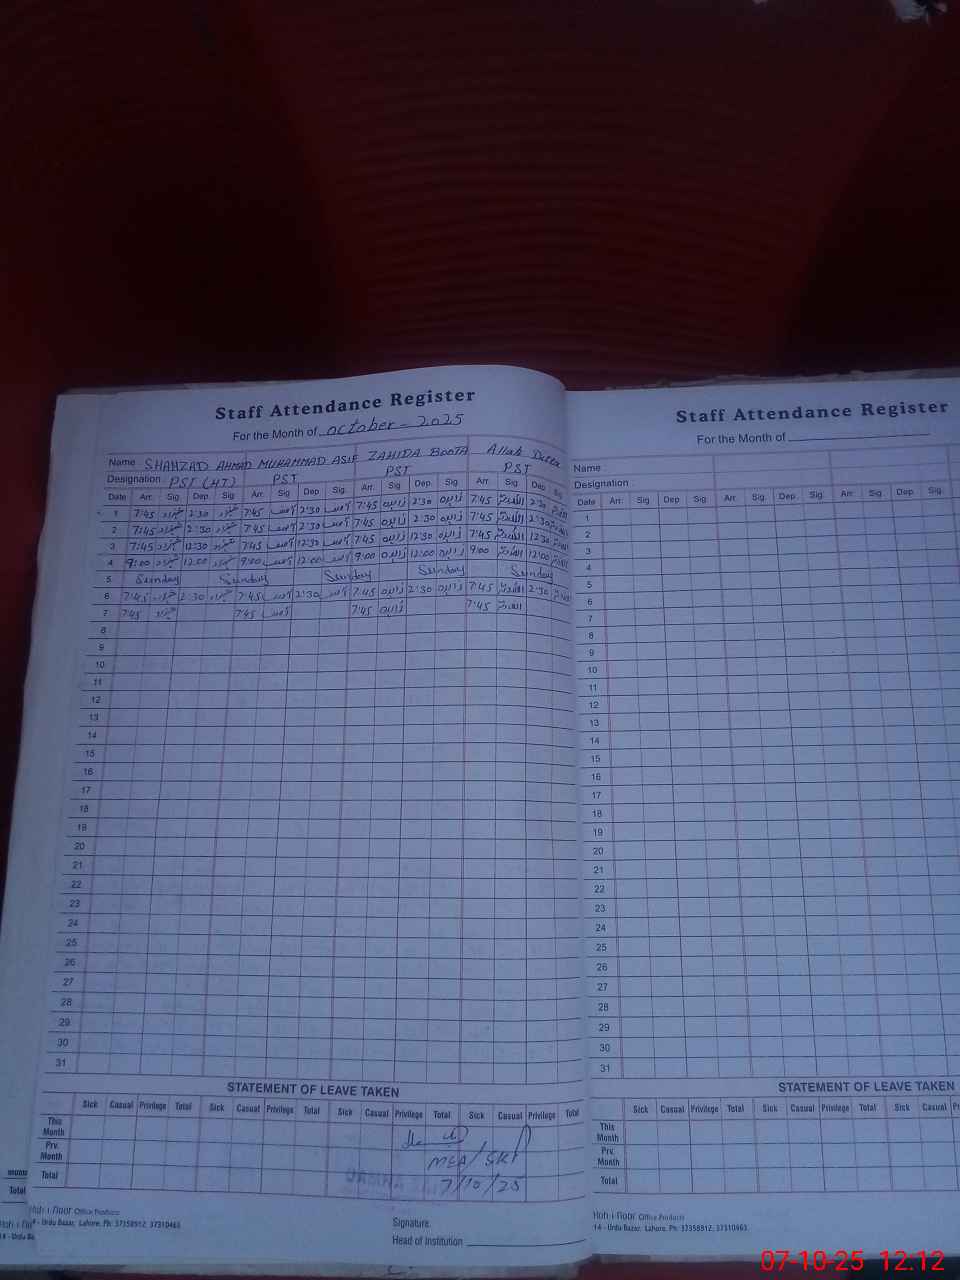 Staff Attendance Register
For the Month of October - 2025
Name : SHAHZAD AHMAD MUHAMMAD ASIF ZAHIDA BOOTA Allah Ditta
Designation : PST (HT) PST PST PST
Date Arr. Sig. Dep. Sig. Arr. Sig. Dep. Sig. Arr. Sig. Dep. Sig. Arr. Sig. Dep. Sig.
1 7:45 شہزاد 2:30 شہزاد 7:45 آصف 2:30 آصف 7:45 زاہدہ 2:30 زاہدہ 7:45 اللہ دتہ 2:30
2 7:45 شہزاد 2:30 شہزاد 7:45 آصف 2:30 آصف 7:45 زاہدہ 2:30 زاہدہ 7:45 اللہ دتہ 2:30
3 7:45 شہزاد 12:30 شہزاد 7:45 آصف 12:30 آصف 7:45 زاہدہ 12:30 زاہدہ 7:45 اللہ دتہ 12:30
4 9:00 شہزاد 12:00 شہزاد 9:00 آصف 12:00 آصف 9:00 زاہدہ 12:00 زاہدہ 9:00 اللہ دتہ 12:00
5 Sunday Sunday Sunday Sunday Sunday
6 7:45 شہزاد 2:30 شہزاد 7:45 آصف 2:30 آصف 7:45 زاہدہ 2:30 زاہدہ 7:45 اللہ دتہ 2:30
7 7:45 شہزاد 7:45 آصف 7:45 زاہدہ 7:45 اللہ دتہ
8
9
10
11
12
13
14
15
16
17
18
19
20
21
22
23
24
25
26
27
28
29
30
31
STATEMENT OF LEAVE TAKEN
Sick Casual Privilege Total Sick Casual Privilege Total Sick Casual Privilege Total Sick Casual Privilege Total
This Month
Prv. Month
MEA/SKT
Total
7/10/25
Office Products
Urdu Bazar, Lahore. Ph: 37358912, 37310463.
Signature.
Head of Institution
Staff Attendance Register
For the Month of
Name :
Designation :
Date Arr. Sig. Dep. Sig. Arr. Sig. Dep. Sig. Arr. Sig. Dep. Sig.
1
2
3
4
5
6
7
8
9
10
11
12
13
14
15
16
17
18
19
20
21
22
23
24
25
26
27
28
29
30
31
STATEMENT OF LEAVE TAKEN
Sick Casual Privilege Total Sick Casual Privilege Total Sick Casual
This Month
Prv. Month
Total
Office Products
14 - Urdu Bazar, Lahore. Ph: 37358912, 37310463.
Total
07-10-25 12:12